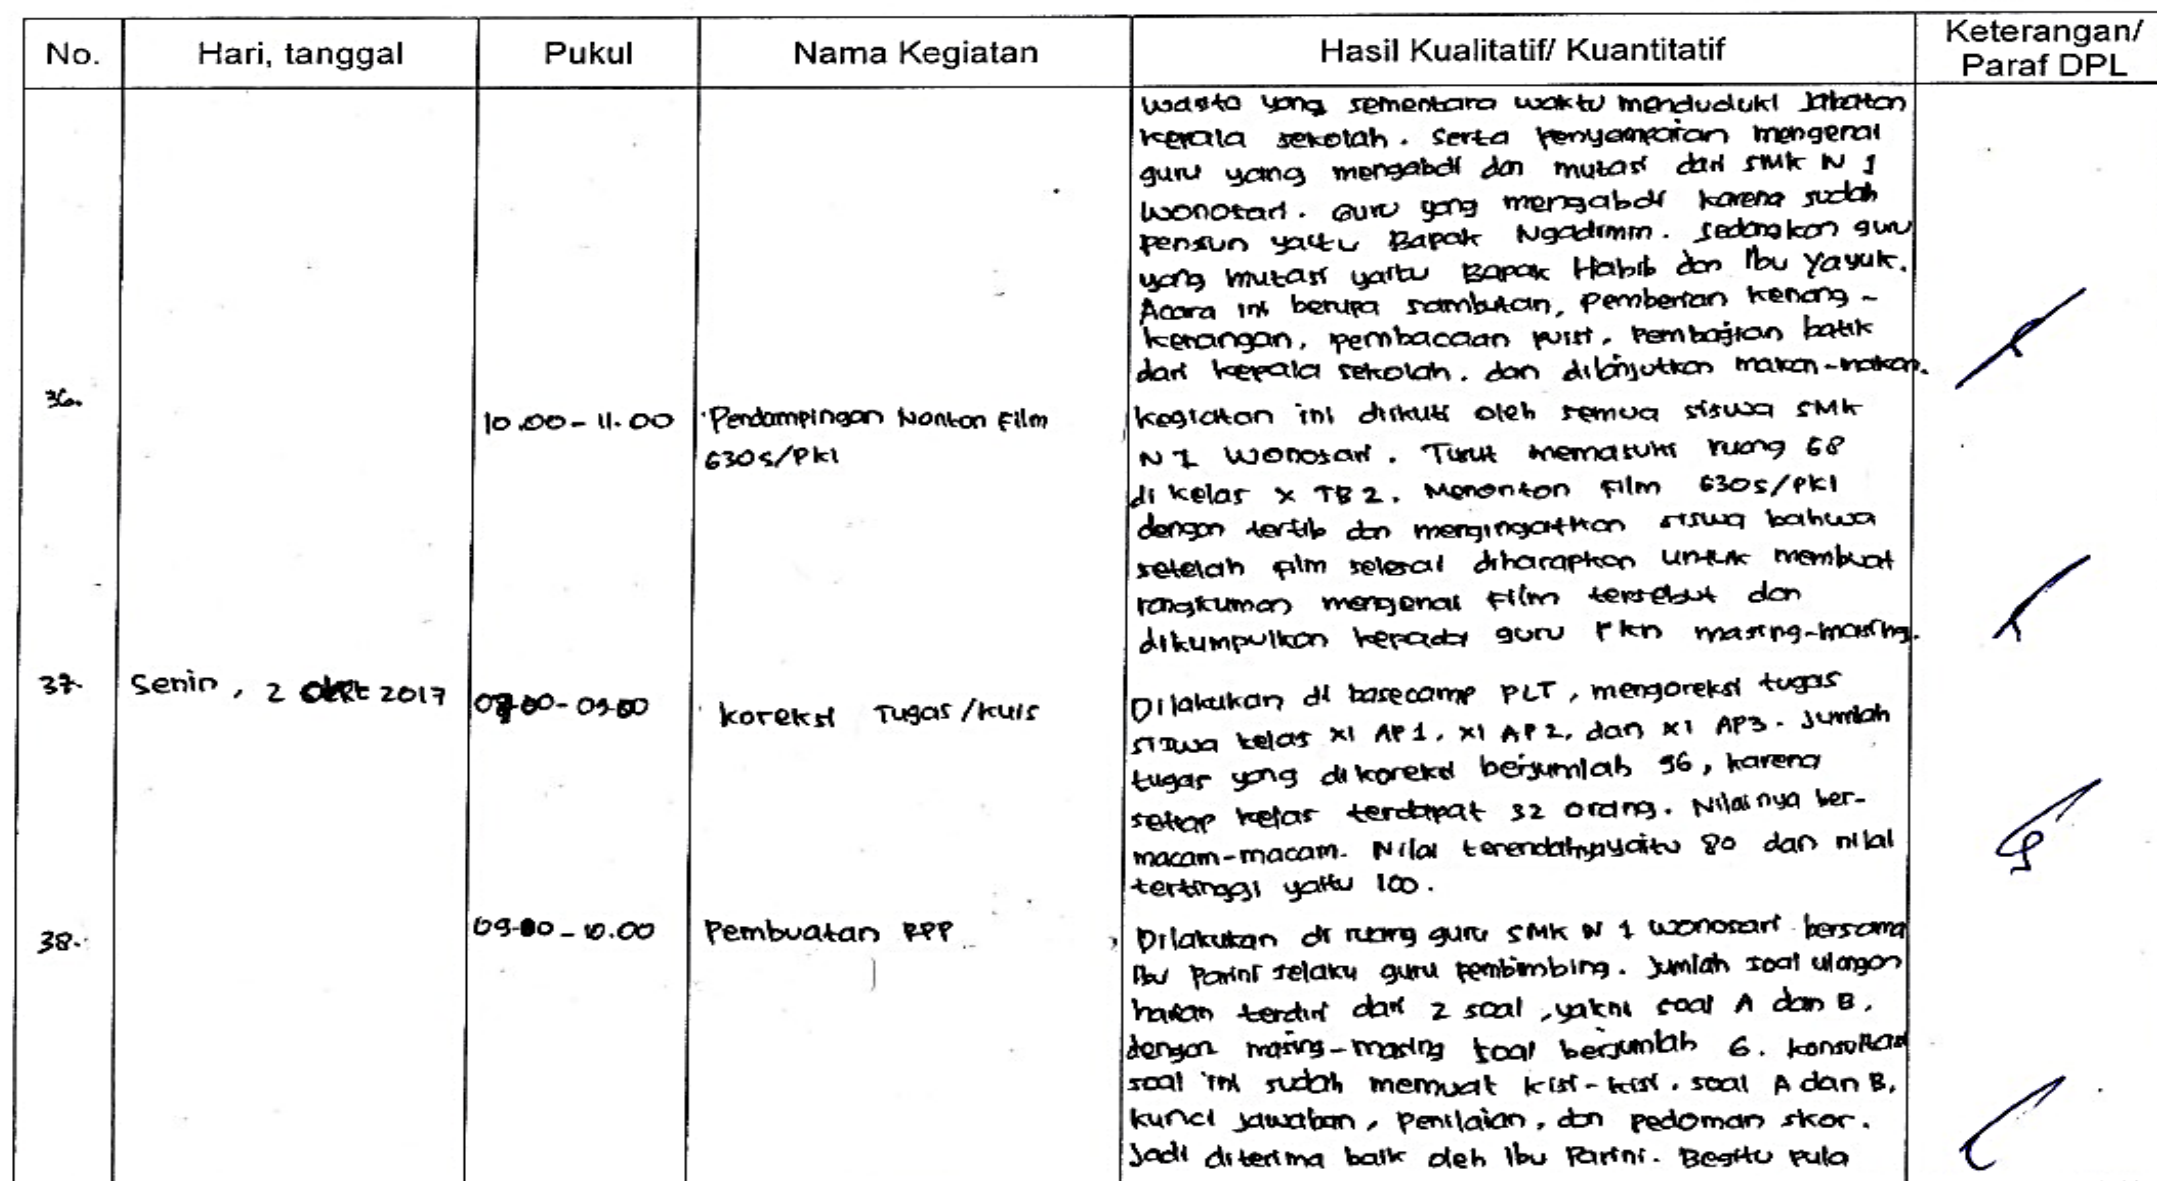 No. Hari, tanggal Pukul Nama Kegiatan Hasil Kualitatif/ Kuantitatif Keterangan/
Paraf DPL
wasto yang sementara waktu menduduki Jabatan
kepala sekolah. Serta penyampaian mengenai
guru yang mengabdi dan mutasi dari SMK N 1
Wonosari. Guru yang mengabdi karena sudah
pensun yaitu Bapak Ngadimin. Sedangkan guru
yang mutasi yaitu Bapak Habib dan Ibu Yayuk.
Acara ini berupa sambutan, Pemberian kenang-
kenangan, pembacaan puisi, Pembagian batik
dari kepala sekolah. dan dilanjutkan makan-makan.
36.
10.00-11.00 Pendampingan Nonton Film
630S/PKI
kegiatan ini diikuti oleh semua siswa SMK
N 1 Wonosari. Turut memasuki ruang 68
di kelas X TB 2. Menonton Film 630S/PKI
dengan tertib dan mengingatkan siswa bahwa
setelah film selesai diharapkan untuk membuat
rangkuman mengenai Film tersebut dan
dikumpulkan kepada guru PKn masing-masing.
37. Senin, 2 Okt 2017 07.00-09.00 Koreksi Tugas/Kuis
Dilakukan di basecamp PLT, mengoreksi tugas
siswa kelas XI AP1, XI AP2, dan XI AP3. Jumlah
tugas yang dikoreksi berjumlah 96, karena
setiap kelas terdapat 32 orang. Nilainya ber-
macam-macam. Nilai terendahnya yaitu 80 dan nilai
tertinggi yaitu 100.
38. 09.00-10.00 Pembuatan RPP
Dilakukan di ruang guru SMK N 1 Wonosari bersama
Ibu Parini selaku guru pembimbing. Jumlah soal ulangan
harian terdiri dari 2 soal, yakni soal A dan B,
dengan masing-masing soal berjumlah 6. Konsultasi
soal ini sudah memuat kisi-kisi, soal A dan B,
kunci jawaban, Penilaian, dan pedoman skor.
Jadi diterima baik oleh Ibu Parini. Begitu pula